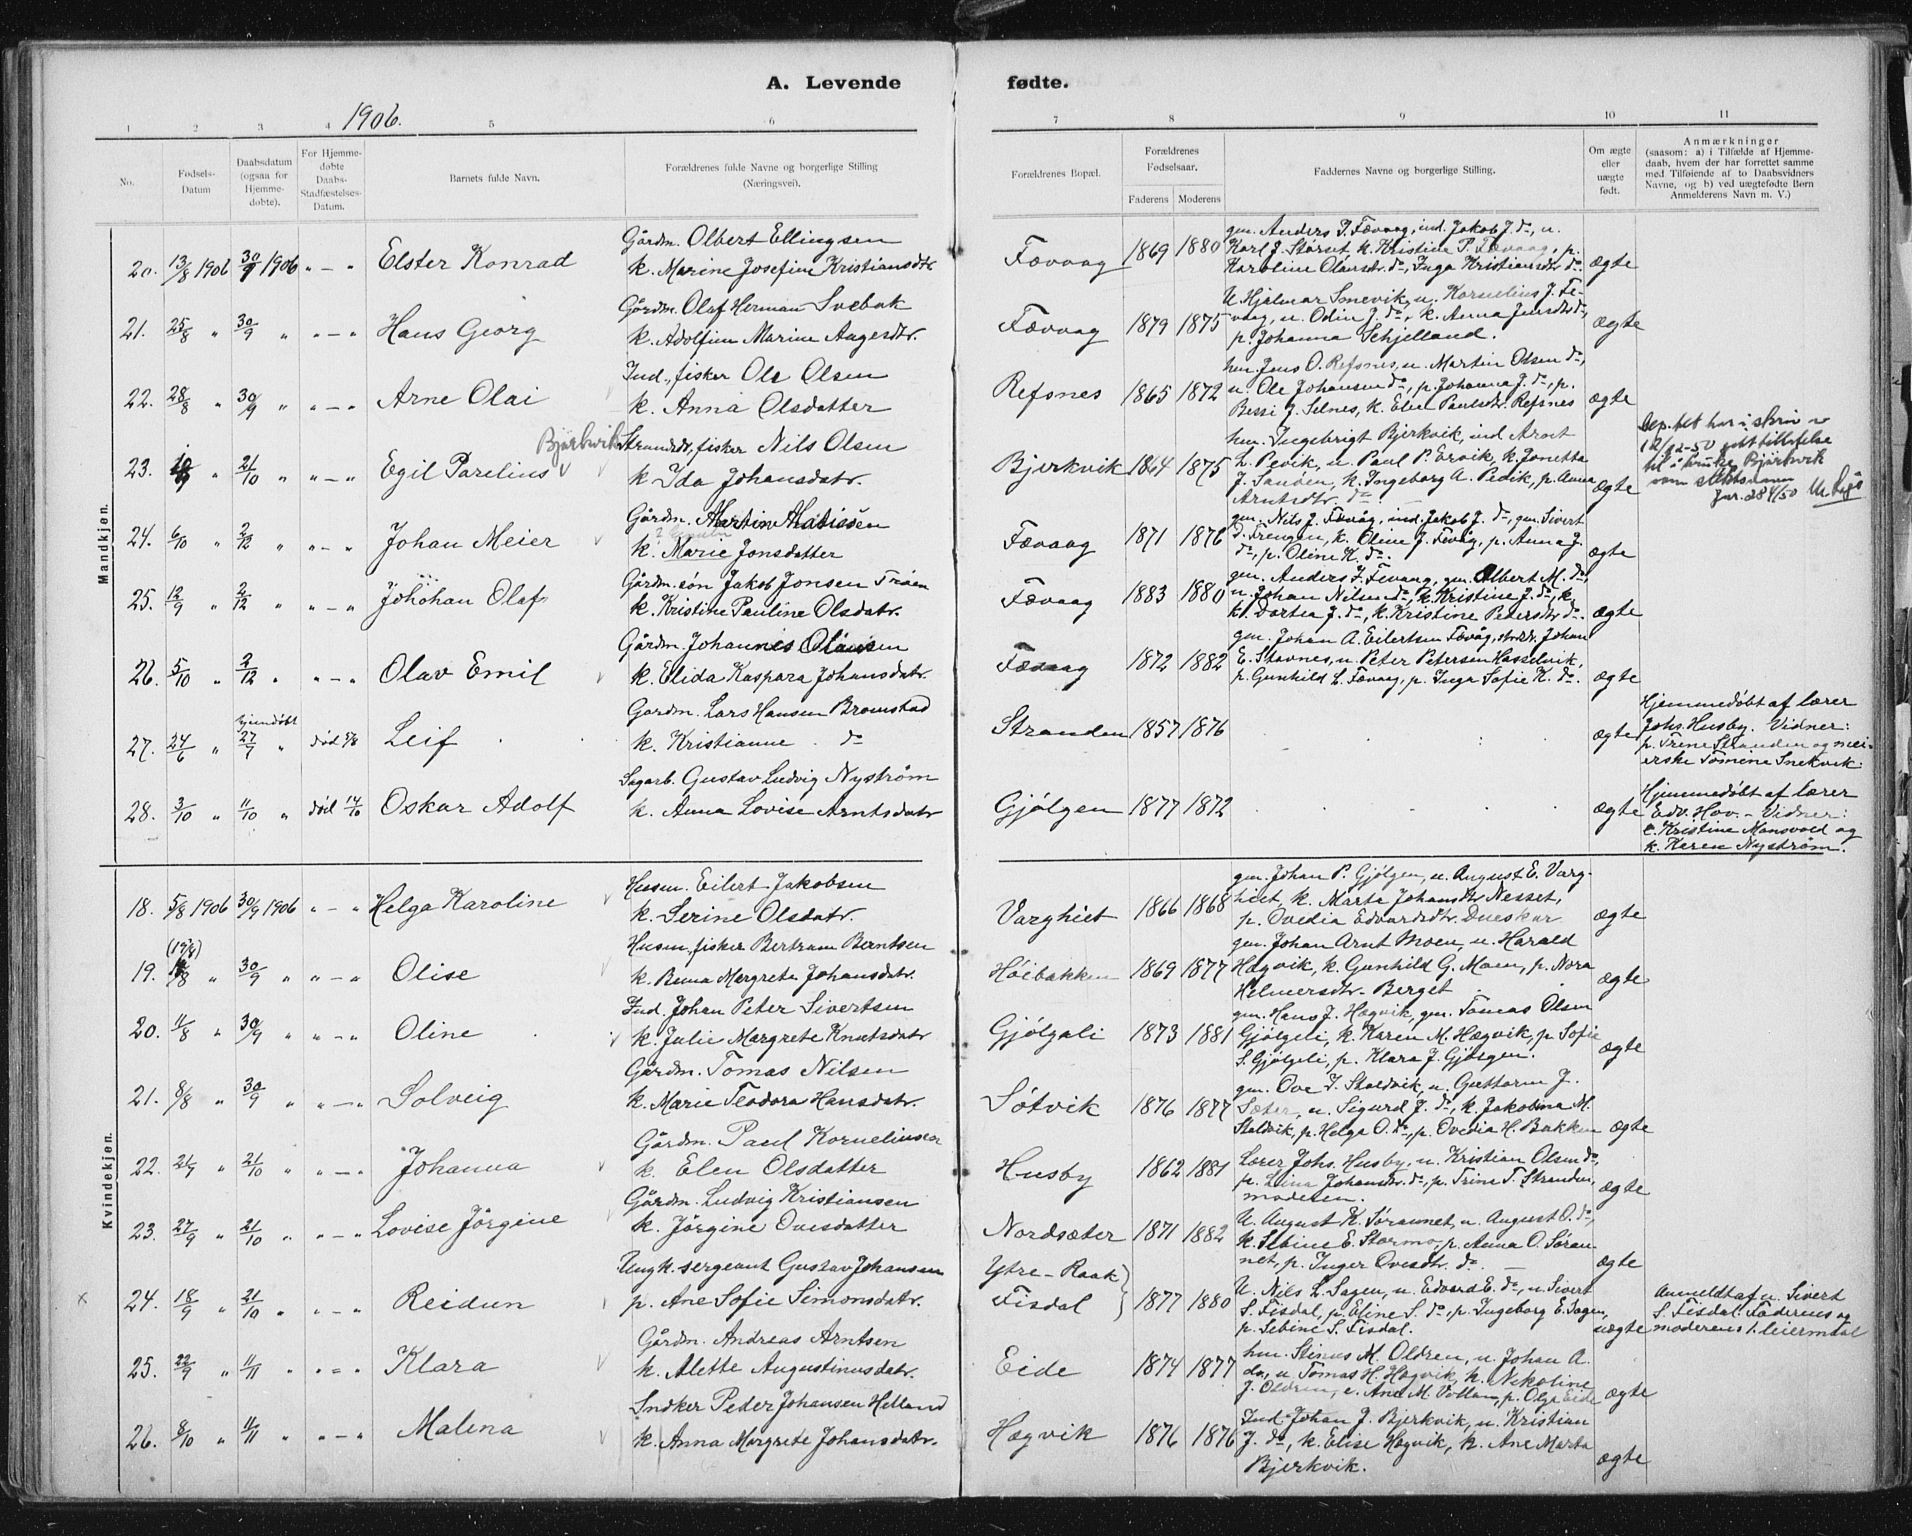 A. Levende fødte.
1906.
1 2 3 4 5 6 7 8 9 10 11
No.
Fødsels-Datum
Daabsdatum (ogsaa for Hjemme-døbte).
For Hjemme-døbte Daabs-Stadfæstelses-Datum.
Barnets fulde Navn.
Forældrenes fulde Navne og borgerlige Stilling (Næringsvei).
Forældrenes Bopæl.
Forældrenes Fødselsaar.
Faderens Moderens
Faddernes Navne og borgerlige Stilling.
Om ægte eller uægte født.
Anmærkninger
(saasom: a) i Tilfælde af Hjemme-
daab, hvem der har forrettet samme
med Tilføiende af to Daabsvidners
Navne, og b) ved uægtefødte Børn
Anmelderens Navn m. V.)
Mandkjøn.
20. 13/8 1906 30/9 1906 " - " Elster Konrad
Gårdm. Olbert Ellingsen
k. Marine Josefine Kristiansdtr
Fævaag 1869 1880
gm. Anders P. Fævaag, ind. Jakob J. do, u.
Karl J. Størset, k. Kristine P. Fævaag, p.
Karoline Olausdtr. do, Inga Kristiansdtr do
ægte
21. 25/8 " 30/9 " " - " Hans Georg
Gårdm. Olaf Herman Svebak
k. Adolfine Marine Aagesdtr.
Fævaag 1879 1875
U Hjalmar Smevik, u. Kornelius J. Fæ-
vaag, u. Odin J. do, k. Anna Jensdtr do,
p. Johanna Schjelland.
ægte
22. 28/8 " 30/9 " " - " Arne Olai
Ind., fisker Ole Olsen
k. Anna Olsdatter
Refsnes 1865 1872
hm. Jens O. Refsnes, u. Martin Olsen do,
u. Ole Johansen do, p. Johanna J. do, p.
Bessi J. Selnes, k. Elen Paulsdtr. Refsnes
ægte
23. 10/9 " 21/10 " " - " Egil Parelius Bjørkvik
Strandsdr, fisker Nils Olsen
k. Ida Johansdatr.
Bjerkvik 1864 1875
hm. Ingebrigt Bjerkvik, ind. Arnt
L. Pevik, u. Paul P. Ervik, k. Jonetta
J. Sanden, k. Ingeborg A. Pedik, p. Anna
Arntsdtr. do
ægte
Dep. tet har i skriv av
12/12-50 gitt tillatelse
til å bruke Bjørkvik
som slektsnavn
Jnr. 284/50
24. 6/10 " 2/12 " " - " Johan Meier
Gårdm. Martin Matisen
k. Marie Jonsdatter
Fævaag 1871 1876
gm. Nils J. Fævåg, ind. Jakob J. do, gm. Sivert
P. Frengen, k. Oline J. Fævåg, p. Anna J.
do, p. Oline K. do.
ægte
25. 12/9 " 2/12 " " - " Johohan Olaf
Gårdm. søn Jakob Jonsen Trøen
k. Kristine Pauline Olsdatr.
Fævaag 1883 1880
gm. Anders J. Fævaag, gm. Albert M. do,
u. Johan Nilsen do, k. Kristine J. do, k.
k. Dortea J. do, k. Kristine Petersdtr do.
ægte
26. 5/10 " 2/12 " " - " Olav Emil
Gårdm. Johannes Olausen
k. Elida Kaspara Johansdatr.
Fævaag 1872 1882
gm. Johan A. Eilertsen Fævåg, strdr. Johan
E. Stavnes, u. Peter Petersen Hasselvik,
p. Gunhild L. Fævaag, p. Inga Sofie K. do.
ægte
27. 24/6 " hjemdøbt 27/7 " død Leif
Gårdm. Lars Hansen Bromstad
k. Kristianne do
Stranden 1857 1876
ægte
Hjemmedøbt af lærer
Johs. Husby. Vidner:
p. Trine Stranden og mei-
erske Tomine Snekvik.
28. 3/10 " 11/10 " død 14/10 Oskar Adolf
Sagarb. Gustav Ludvig Nystrøm
k. Anna Lovise Arntsdatr
Gjølgen 1877 1872
ægte
Hjemmedøbt af lærer
Edv. Hov. - Vidner:
e. Kristine Monsvold og
k. Karen Nystrøm.
Kvindekjøn.
18. 5/8 1906 30/9 1906 " - " Helga Karoline
Husm. Eilert Jakobsen
k. Serine Olsdatr.
Varghiet 1866 1868
gm. Johan P. Gjølgen, u. August E. Varg-
hiet, k. Marta Johansdtr Nesset,
p. Ovedia Edvardsdtr. Dueskar
ægte
19. (19/8) " 30/9 " " - " Olise
Husm. fisker Bertram Berntsen
k. Berna Margrete Johansdatr.
Höibakken 1869 1877
gm. Johan Arnt Moen, u. Harald
Hægvik, k. Gunhild G. Moen, p. Nora
Helmersdtr. Berget
ægte
20. 11/8 " 30/9 " " - " Oline
Ind. Johan Peter Sivertsen
k. Julie Margrete Knutsdatr
Gjølgali 1873 1881
gm. Hans J. Hægvik, gm. Tomas Olsen
Gjølgeli, k. Karen M. Hægvik, p. Sofie
S. Gjølgeli, p. Klara J. Gjølgen.
ægte
21. 8/8 " 30/9 " " - " Solveig
Gårdm. Tomas Nilsen
k. Marie Teodora Hansdatr.
Søtvik 1876 1877
gm. Ove J. Staldvik, u. Guttorm J.
Sæter, u. Sigurd J. do, k. Jakobina M.
Staldvik, p. Helga O. do, p. Ovedia H. Bakken
ægte
22. 21/9 " 21/10 " " - " Johanna
Gårdm. Paul Korneliusen
k. Elen Olsdatter
Husby 1862 1881
Lærer Johs. Husby, u. Kristian Olsen do,
p. Lina Johansdtr. do, p. Trine T. Stranden,
moderen.
ægte
23. 27/9 " 21/10 " " - " Lovise Jörgine
Gårdm. Ludvig Kristiansen
k. Jörgine Ovesdatter
Nordsæter 1871 1882
U. August K. Søraunet, u. August O. do,
k. Sebine E. Stormo, p. Anna O. Sørau-
net, p. Inger Ovesdtr. do.
ægte
x 24. 18/9 " 21/10 " " - " Reidun
Ungk. sergeant Gustav Johansen
p. Ane Sofie Simonsdatr.
Ytre-Raak }
Fisdal } 1877 1880
U. Nils L. Sagen, u. Edvard E. do, u. Sivert
S. Fisdal, p. Eline S. do, p. Ingeborg E. Sagen,
p. Sebine S. Fisdal.
uægte
Anmeldt af u. Sivert
S. Fisdal. Faderens og
moderens 1. leiermaal
25. 22/9 " 11/11 " " = " Klara
Gårdm. Andreas Arntsen
k. Alette Augustinusdatr.
Eide 1874 1877
hm. Stinus M. Oldren, u. Johan A.
do, u. Tomas H. Hægvik, k. Nikoline
J. Oldren, e. Ane M. Vollan, p. Olga Eide
ægte
26. 8/10 " 11/11 " " - " Malena
Sndker Peder Johansen Hetland
k. Anna Margrete Johansdatr.
Hægvik 1876 1876
Ind. Johan J. Bjerkvik, u. Kristian
J. do, k. Elise Hægvik, k. Ane Marta
Bjerkvik.
ægte